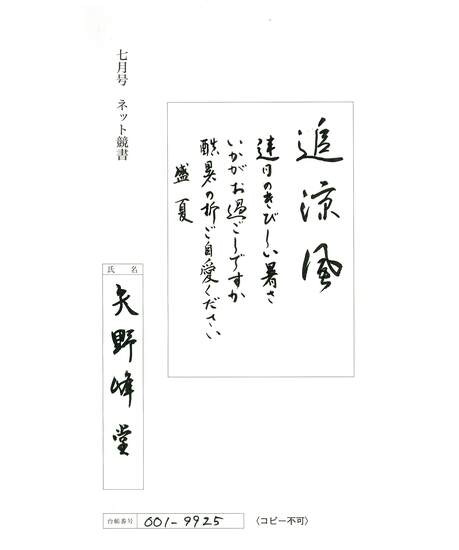 七月号 ネット競書
追涼風
連日のきびしい暑さ
いかがお過ごしですか
酷暑の折ご自愛ください
盛夏
氏名
矢野峰堂
台帳番号 001-9925 〈コピー不可〉